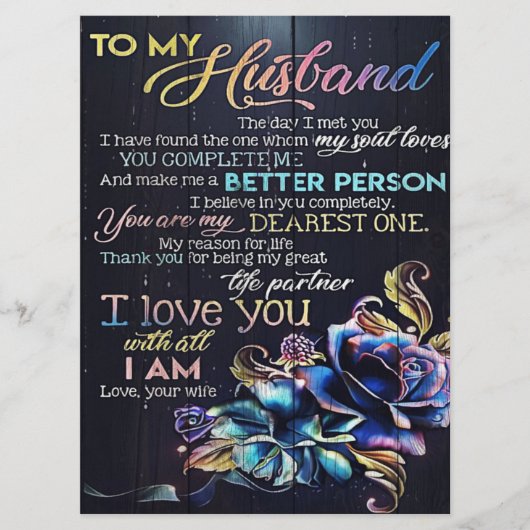 TO MY Husband
The day I met you
I have found the one whom my soul loves
YOU COMPLETE ME
And make me a BETTER PERSON
I believe in you completely.
You are my DEAREST ONE.
My reason for life
Thank you for being my great
life partner
I love you
with all
I AM
Love, your wife